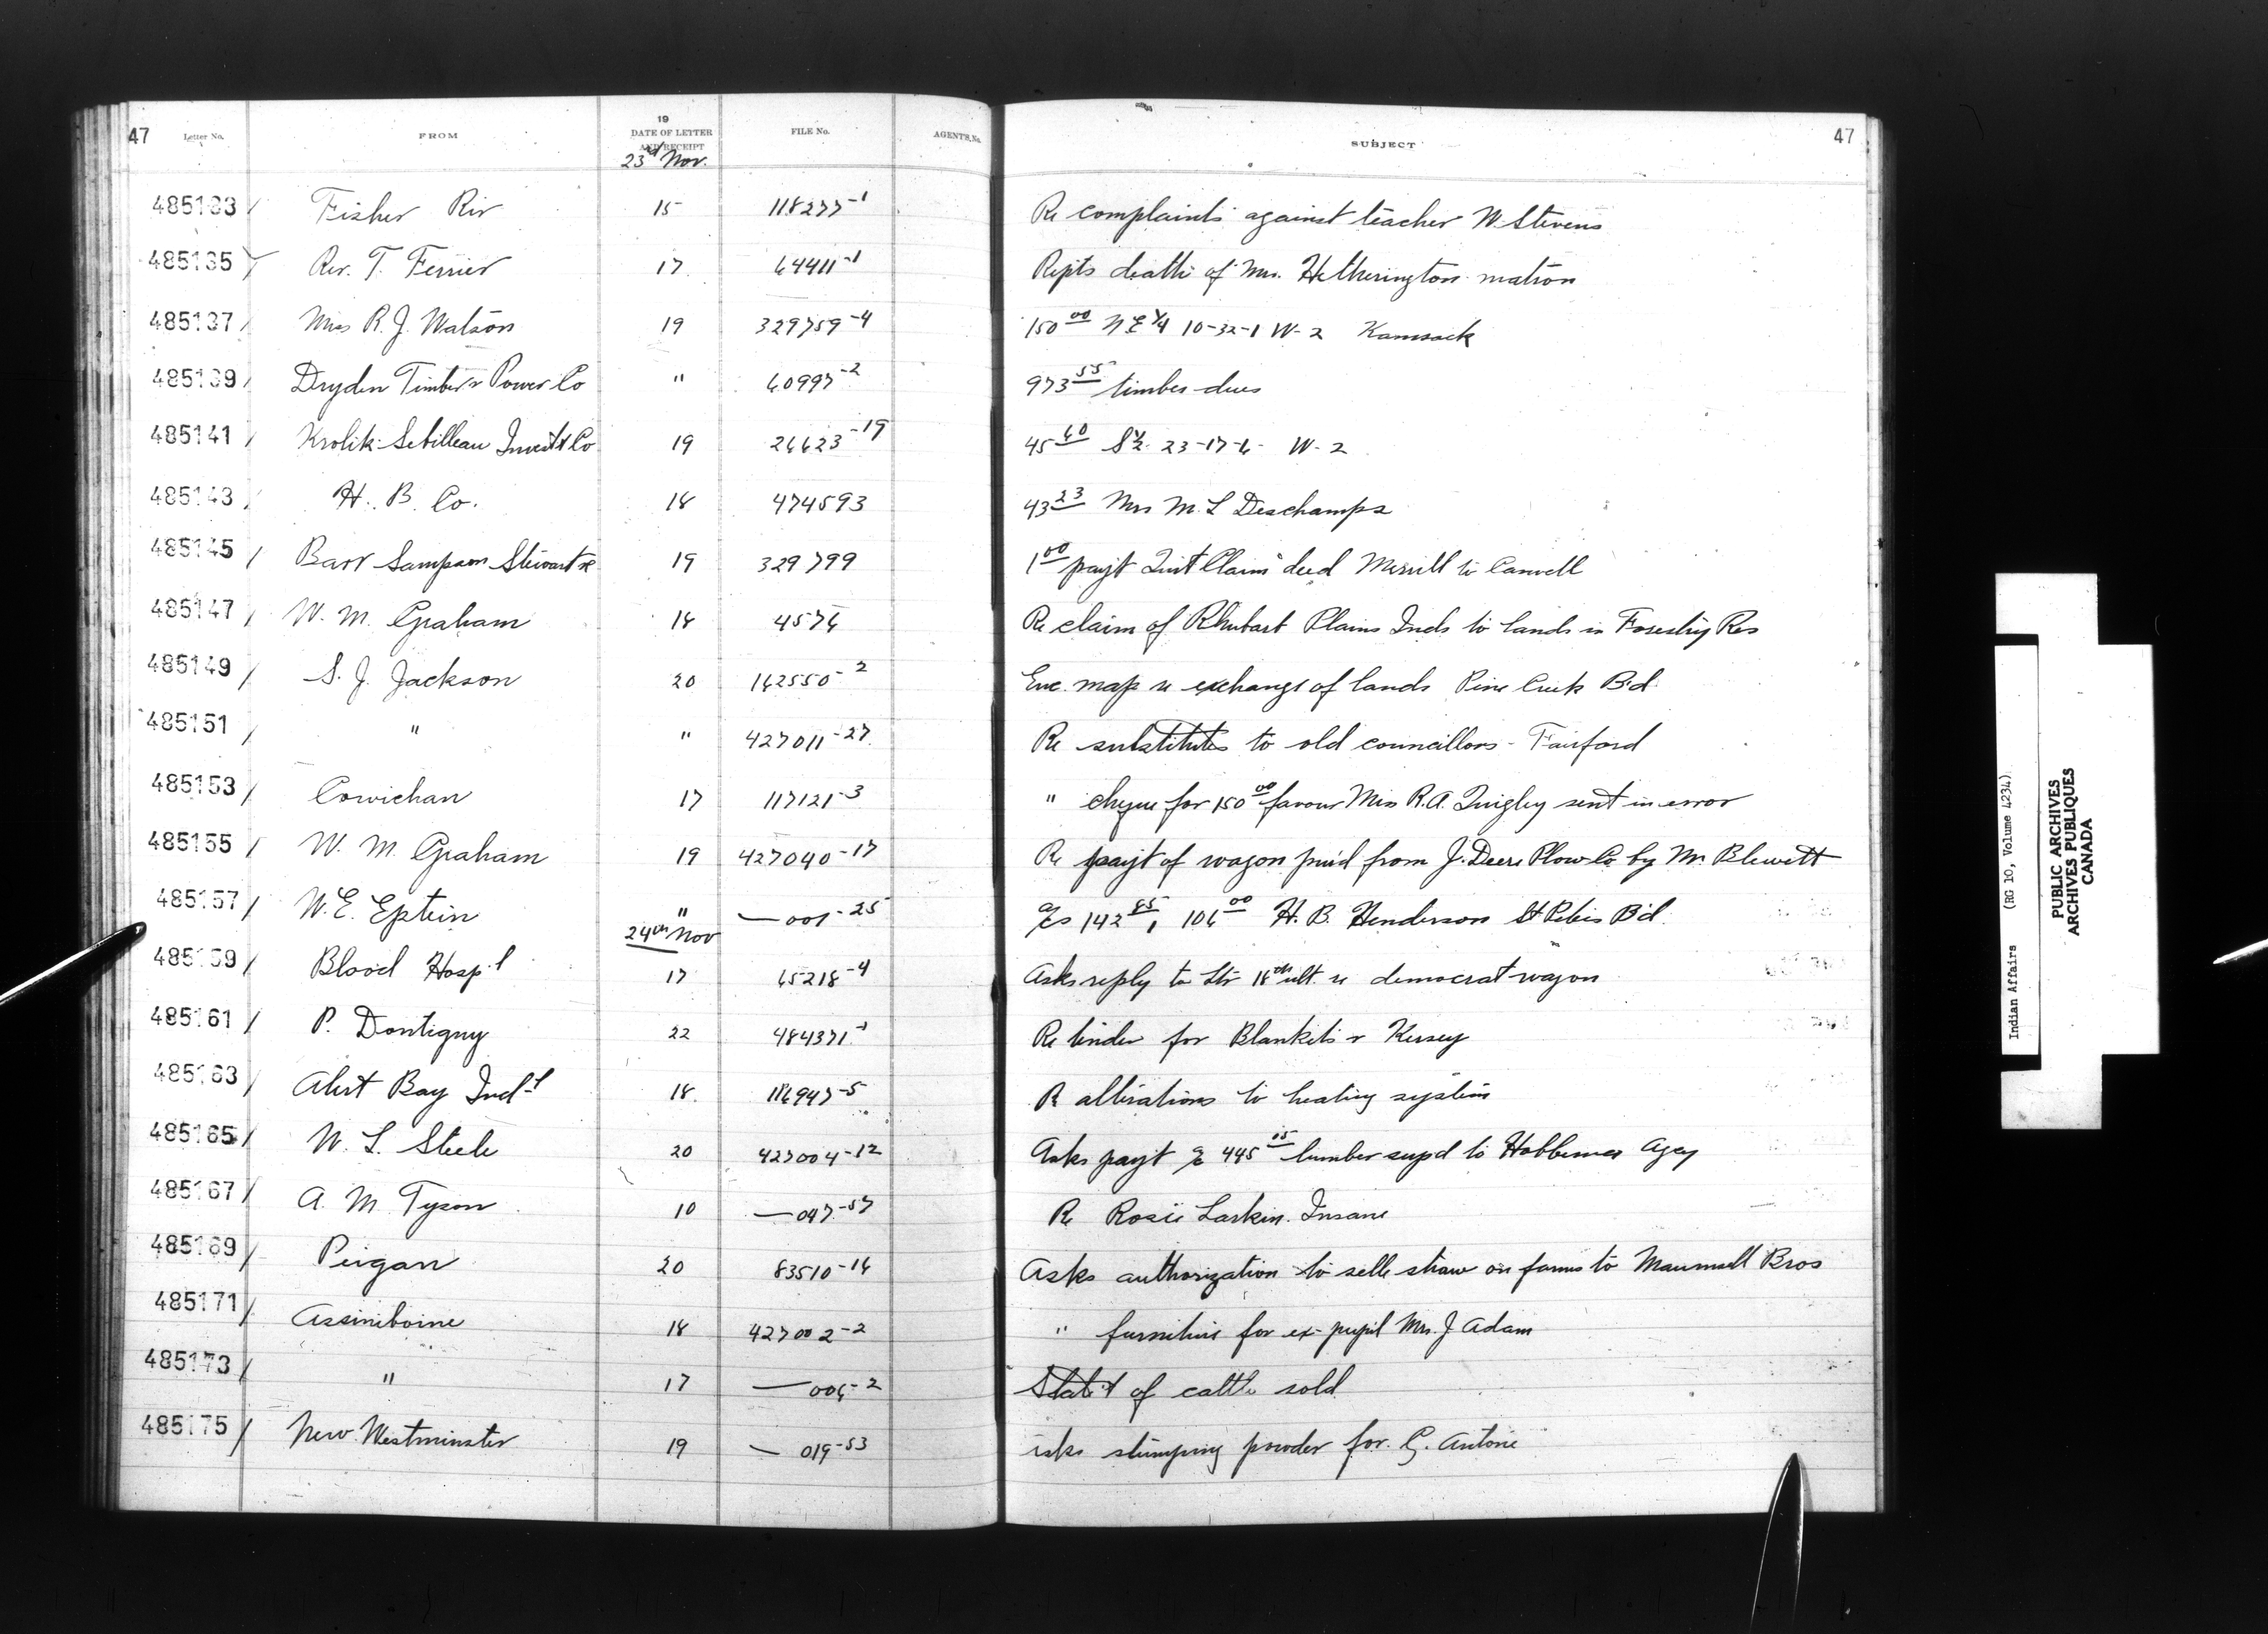 47 Letter No. FROM 19 DATE OF LETTER AND RECEIPT FILE No. AGENT'S No. SUBJECT 47
23rd Nov.
485133 / Fisher Riv 15 118277-1 Re complaints against teacher W. Stevens
485135 Rev. T. Ferrier 17 64411-1 Repts death of Mrs. Hetherington matron
485137 / R. J. Watson 19 329759-4 150 00 NE 1/4 10-32-1 W-2 Kamsack
485139 / Dryden Timber & Power Co " 60997-2 973 55 timber dues
485141 / Krolik Co 19 26623-19 45 60 S 1/2 23-17-6 W-2
485143 / H. B. Co. 18 474593 43 23 Mrs M. L Deschamps
485145 / Barr Sampson Stewart &c 19 329799 1 00 payt Quit Claim deed Merrill to
485147 / W. M. Graham 18 4576 Re claim of Plains Inds to lands in Forestry Res
485149 / S. J. Jackson 20 162550-2 Enc. map re exchange of lands Pine Creek Bd
485151 / " " 427011-27 Re substitutes to old councillors - Fairford
485153 / Cowichan 17 117121-3 " cheque for 150 00 favour Miss R. A. Quigley sent in error
485155 / W. M. Graham 19 427040-17 Re payt of wagon pur'd from J. Deere Plow Co by Mr. Blewett
485157 / W. E. Eptein " — 001-25 a/cs 142 85, 106 00 H. B. Henderson St Peters Bd.
24th Nov
485159 / Blood Hosp'l 17 65218-4 Asks reply to Ltr 18th ult. re democrat wagon
485161 / P. Dontigny 22 484371-1 Re tender for Blankets & Kersey
485163 / Alert Bay Ind'l 18 116947-5 Re alterations to heating system
485165 / W. L. Steele 20 427004-12 Asks payt a/c 445 15 lumber supd to Hobbema Agcy
485167 / A. M. Tyson 10 — 047-57 Re Rosie Larkin. Insane
485169 / Peigan 20 83510-14 Asks authorization to selle straw on farms to Maunsell Bros
485171 / Assiniboine 18 427002-2 " furniture for ex-pupil Mrs. J Adam
485173 / " 17 — 006-2 Stat't of cattle sold
485175 / New Westminster 19 — 019-53 asks stumping powder for G. Antone
Indian Affairs (RG 10, Volume 4234)
PUBLIC ARCHIVES
ARCHIVES PUBLIQUES
CANADA